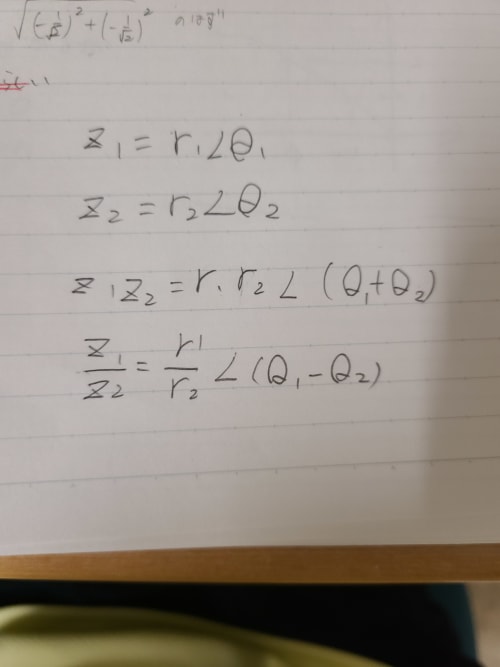 √((-1/√2)²+(-1/√2)²)
z₁=r₁∠θ₁
z₂=r₂∠θ₂
z₁z₂=r₁r₂∠(θ₁+θ₂)
z₁/z₂=r₁/r₂∠(θ₁-θ₂)